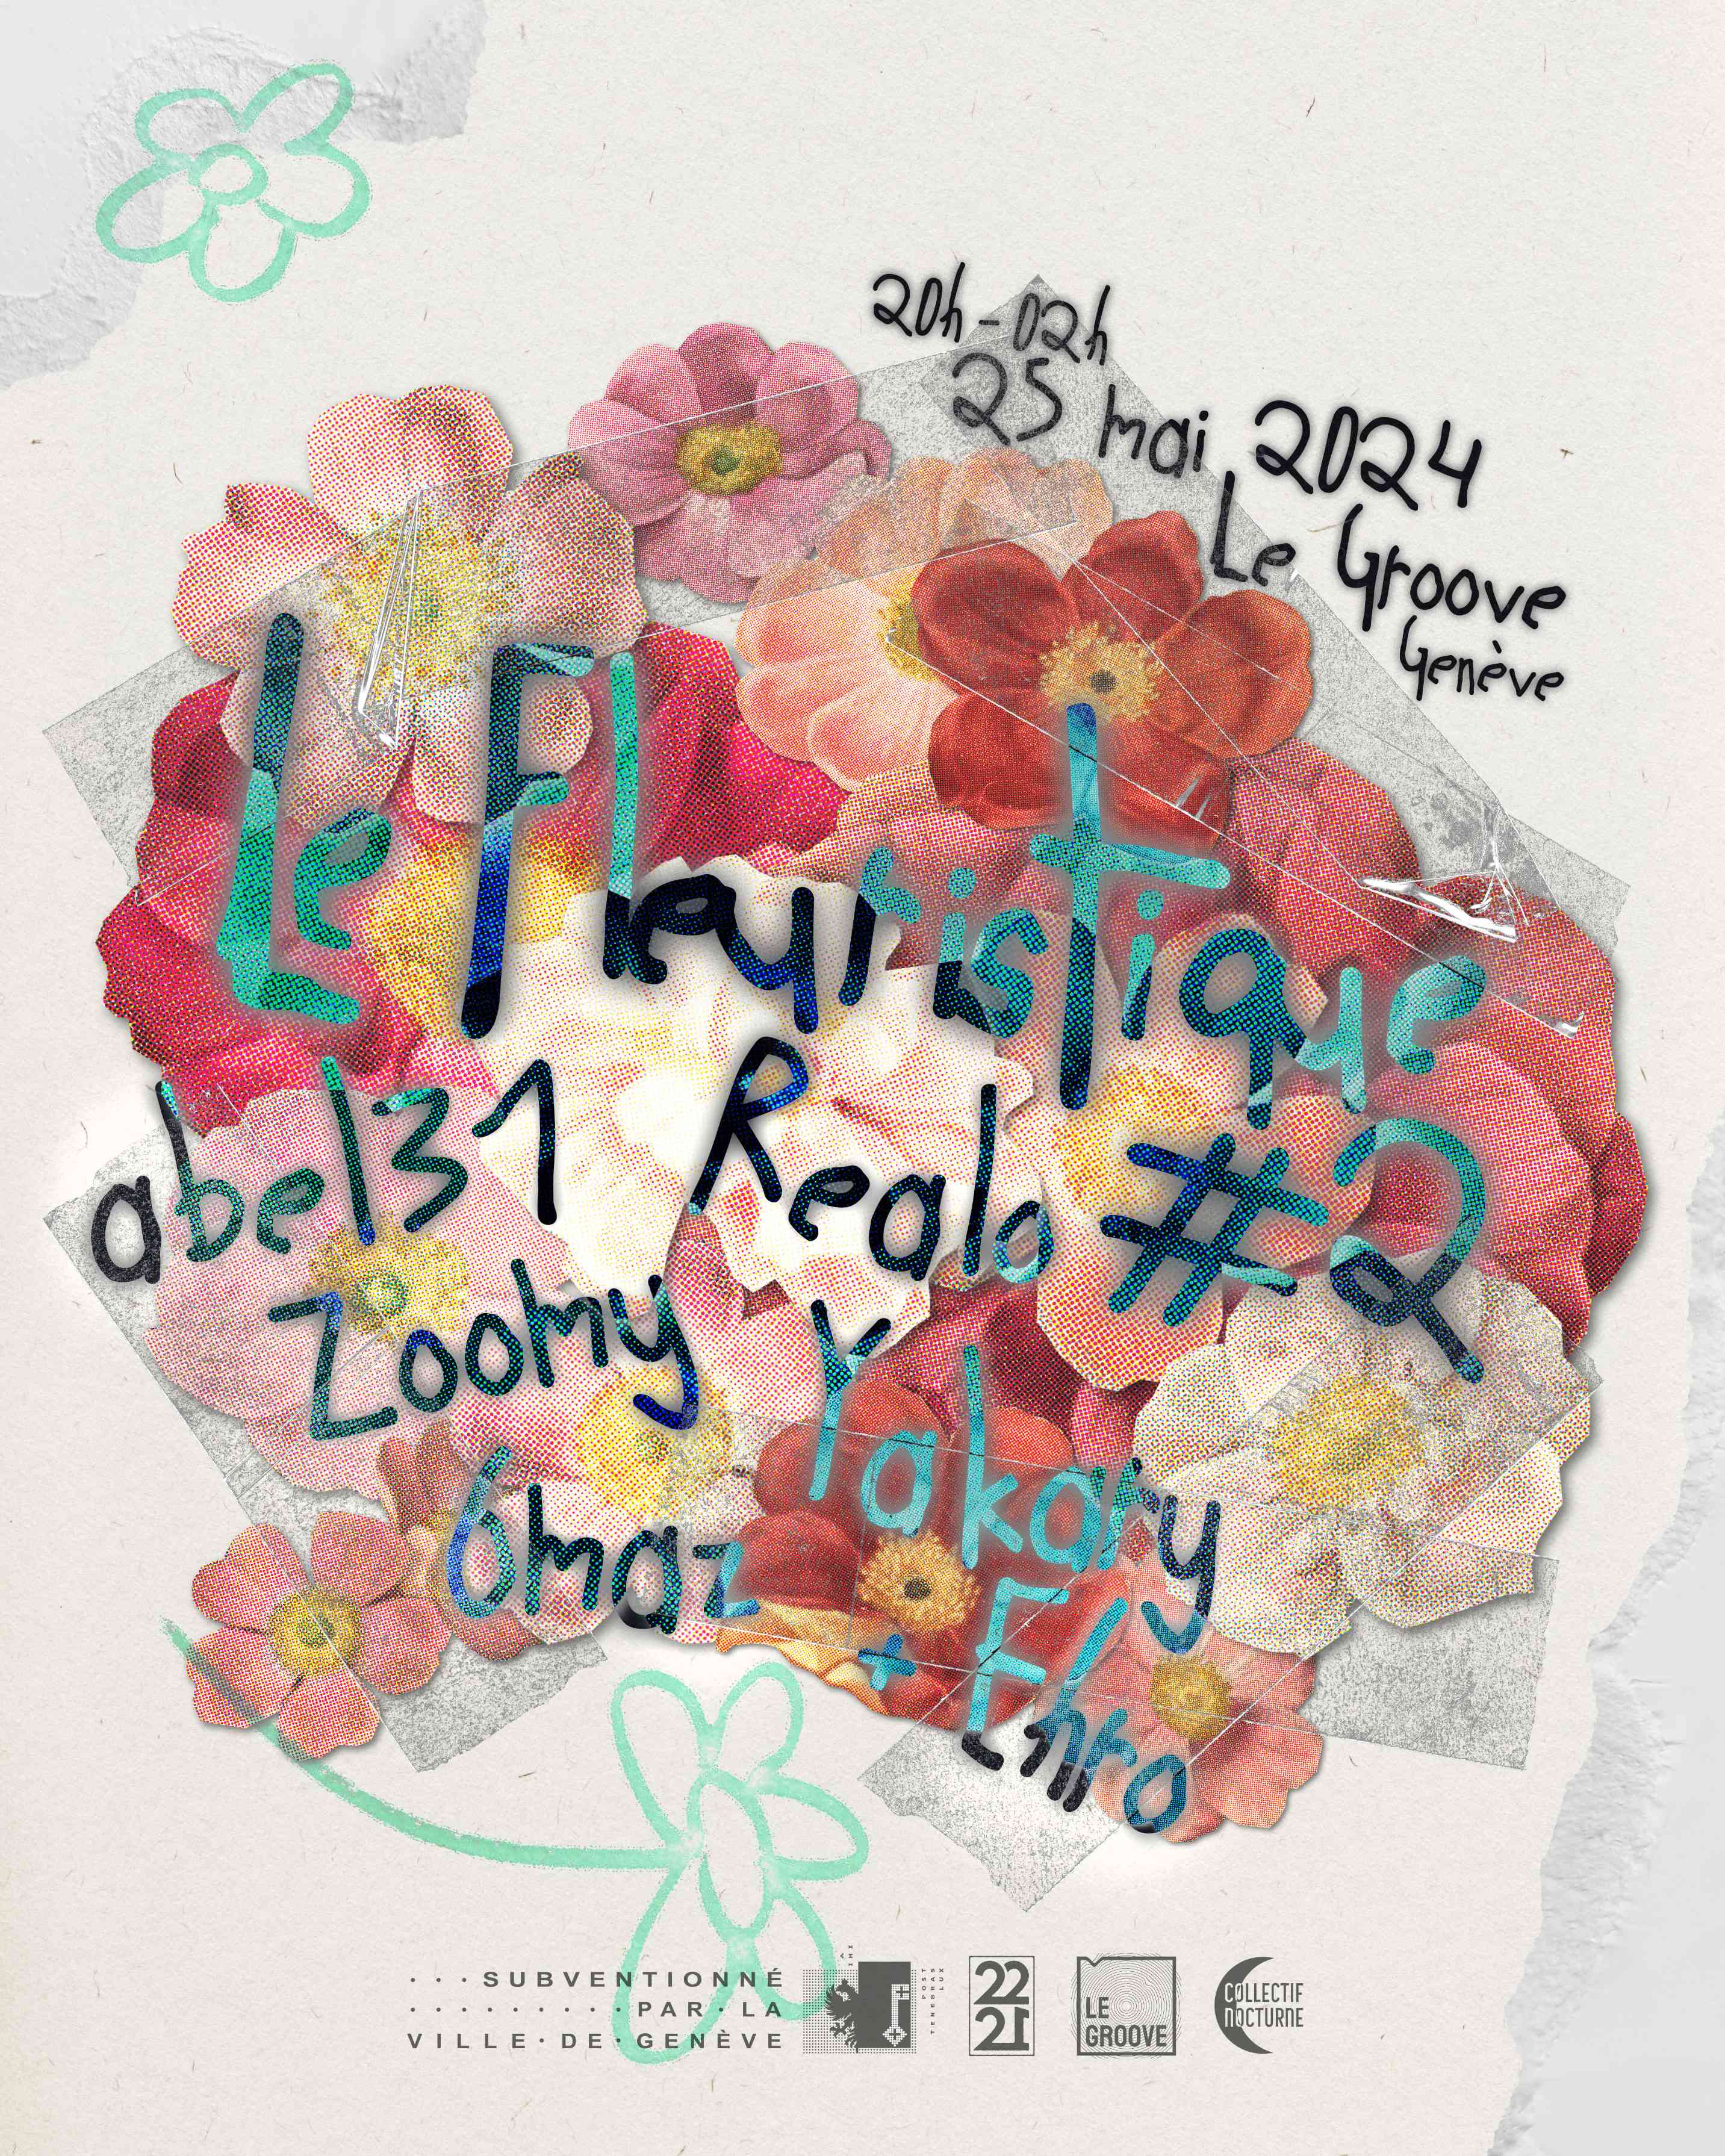 20h-02h
25 mai 2024
Le Groove
Genève
Le Fleuristique
#2
abel31 Realo
Zoomy Yakary
6maz + Ehro
· · · SUBVENTIONNÉ
· · · · · · · · · · PAR · LA
VILLE · DE · GENÈVE
POST
TENEBRAS
LUX
22
21
LE
GROOVE
COLLECTIF
NOCTURNE